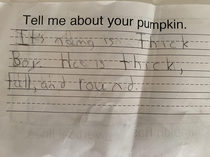 Tell me about your pumpkin.
It's name is Thick
Boy. Hee is thick,
tall, and round.